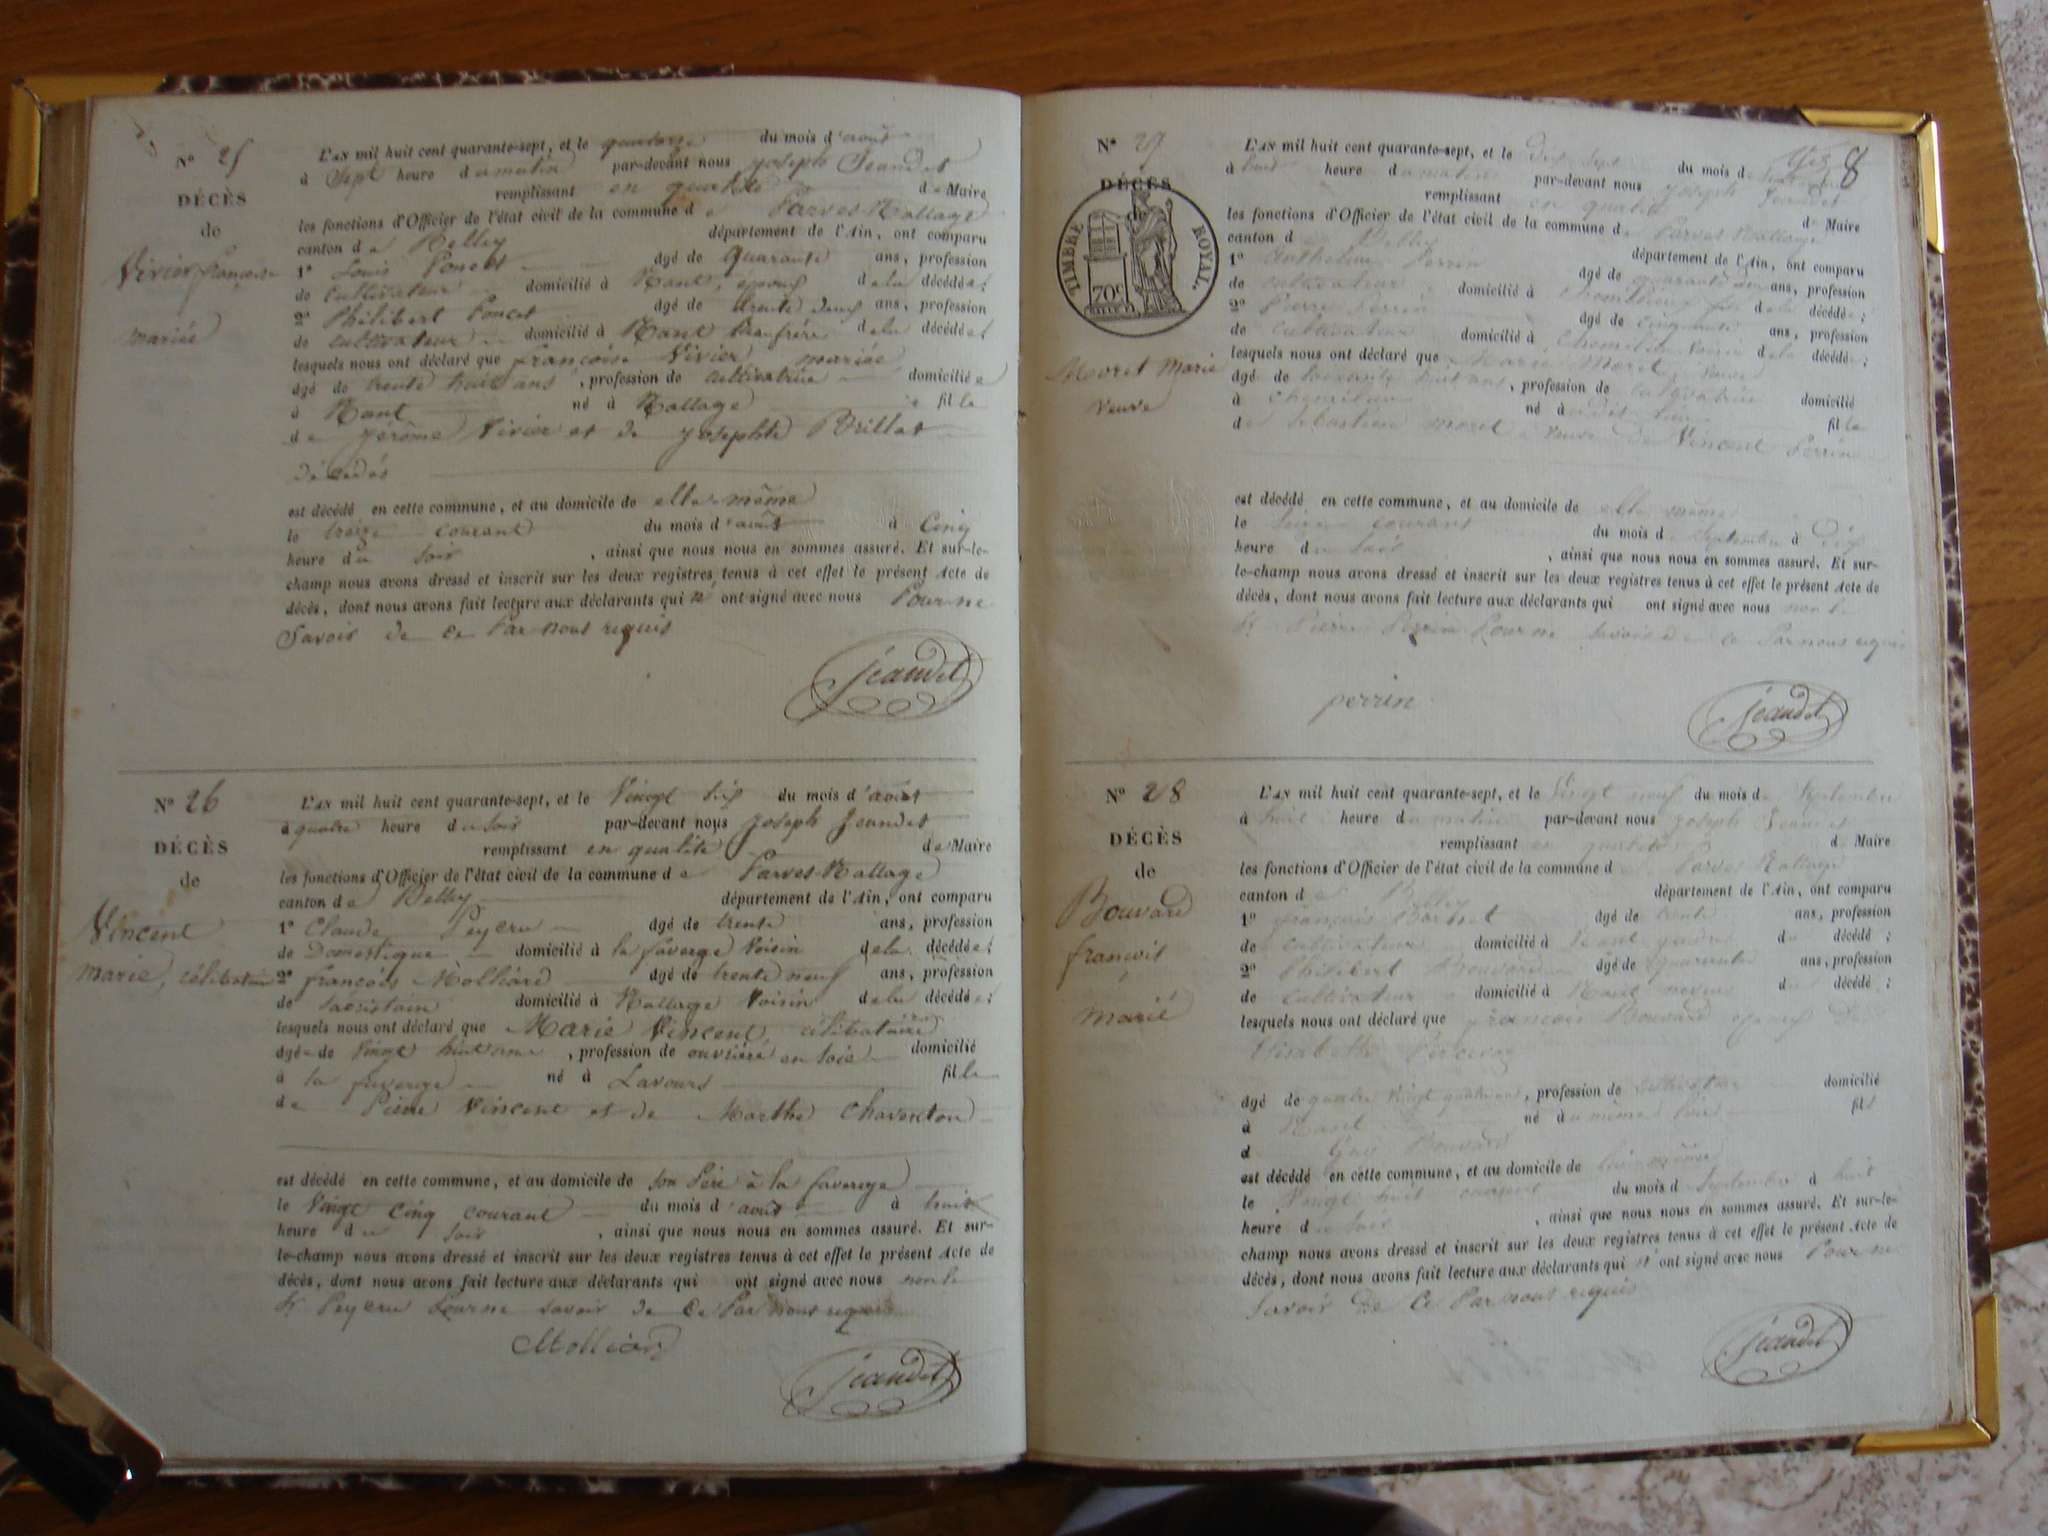 N° 25
DÉCÈS
de
Vivier françoise
mariée
L'AN mil huit cent quarante-sept, et le quatorze du mois d'août
à Sept heure du matin par-devant nous Joseph Jeandet
remplissant en qualité de Maire
les fonctions d'Officier de l'état civil de la commune de Parves-Nattage
canton de Belley département de l'Ain, ont comparu
1° Louis Poncet âgé de Quarante ans, profession
de cultivateur domicilié à Nant, époux de la décédée;
2° Philibert Poncet âgé de trente deux ans, profession
de cultivateur domicilié à Nant beaufrère de la décédée;
lesquels nous ont déclaré que françoise Vivier mariée
âgé de trente huit ans, profession de cultivatrice domiciliée
à Nant né à Nattage fille
de Jérôme Vivier et de Josephte Brillat
décédés
est décédé en cette commune, et au domicile de elle même
le treize courant du mois d'août à Cinq
heure du soir, ainsi que nous nous en sommes assuré. Et sur-le-
champ nous avons dressé et inscrit sur les deux registres tenus à cet effet le présent Acte de
décès, dont nous avons fait lecture aux déclarants qui n' ont signé avec nous Pour ne
Savoir de ce Par nous requis
Jeandet
N° 26
DÉCÈS
de
Vincent
marie, célibataire
L'AN mil huit cent quarante-sept, et le Vingt six du mois d'août
à quatre heure du soir par-devant nous Joseph Jeandet
remplissant en qualité de Maire
les fonctions d'Officier de l'état civil de la commune de Parves-Nattage
canton de Belley département de l'Ain, ont comparu
1° Claude Peyeru âgé de trente ans, profession
de Domestique domicilié à la faverge Voisin de la décédée;
2° françois Molliard âgé de trente neuf ans, profession
de sacristain domicilié à Nattage Voisin de la décédée;
lesquels nous ont déclaré que Marie Vincent, célibataire
âgé de Vingt huit ans, profession de ouvrière en soie domicilié
à la faverge né à Lavours fille
de Pierre Vincent et de Marthe Chaventon
est décédé en cette commune, et au domicile de son Père à la faverge
le Vingt cinq courant du mois d'août à huit
heure du soir, ainsi que nous nous en sommes assuré. Et sur-
le-champ nous avons dressé et inscrit sur les deux registres tenus à cet effet le présent Acte de
décès, dont nous avons fait lecture aux déclarants qui ont signé avec nous non le
Sr Peyeru Pour ne savoir de ce Par nous requis
Molliard
Jeandet
8
N° 27
DÉCÈS
TIMBRE ROYAL
70c
Moret Marie
veuve
L'AN mil huit cent quarante-sept, et le dix sept du mois de septembre
à huit heure du matin par-devant nous Joseph Jeandet
remplissant en qualité de Maire
les fonctions d'Officier de l'état civil de la commune de Parves Nattage
canton de Belley département de l'Ain, ont comparu
1° Anthelme Perrin âgé de quarante ans, profession
de cultivateur domicilié à Chemillieu fils de la décédée;
2° Pierre Perrin âgé de cinquante ans, profession
de cultivateur domicilié à Chemillieu Voisin de la décédée;
lesquels nous ont déclaré que Marie Moret, veuve
âgé de soixante huit ans, profession de cultivatrice domicilié
à Chemillieu né à au dit lieu fille
de Sebastien Moret veuve de Vincent Perrin
est décédé en cette commune, et au domicile de elle même
le Seize courant du mois de septembre à Dix
heure du soir, ainsi que nous nous en sommes assuré. Et sur-
le-champ nous avons dressé et inscrit sur les deux registres tenus à cet effet le présent Acte de
décès, dont nous avons fait lecture aux déclarants qui ont signé avec nous non le
Sr Pierre Perrin Pour ne savoir de ce Par nous requis
perrin
Jeandet
N° 28
DÉCÈS
de
Bouvard
françois
marié
L'AN mil huit cent quarante-sept, et le Vingt neuf du mois de Septembre
à huit heure du matin par-devant nous Joseph Jeandet
remplissant en qualité de Maire
les fonctions d'Officier de l'état civil de la commune de Parves Nattage
canton de Belley département de l'Ain, ont comparu
1° françois âgé de trente ans, profession
de cultivateur domicilié à Nant gendre du décédé;
2° Philibert Bouvard âgé de quarante ans, profession
de cultivateur domicilié à Nant neveu du décédé;
lesquels nous ont déclaré que françois Bouvard époux de
Elisabeth
âgé de quatre Vingt quatre ans, profession de cultivateur domicilié
à Nant né au même lieu fils
d Guy Bouvard
est décédé en cette commune, et au domicile de lui même
le Vingt huit courant du mois de Septembre à huit
heure du soir, ainsi que nous nous en sommes assuré. Et sur-le-
champ nous avons dressé et inscrit sur les deux registres tenus à cet effet le présent Acte de
décès, dont nous avons fait lecture aux déclarants qui n' ont signé avec nous Pour ne
savoir de ce Par nous requis
Jeandet